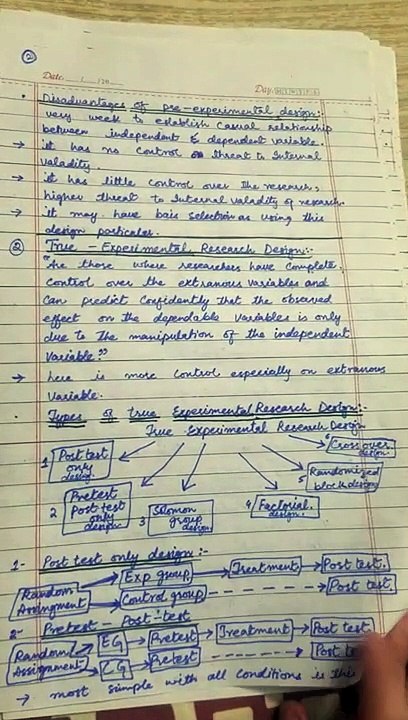 2
Date / /20
Day
• Disadvantages of pre-experimental design:-
very week to establish casual relationship
between independent & dependent variable.
→ it has no control on threat to Internal
valadity
→ it has little control over the research,
higher threat to Internal valadity of research.
→ It may have bais selection as using this
design particular.
② True - Experimental Research Design:-
"Are those where researchers have complete
control over the extranous variables and
can predict cofidently that the observed
effect on the dependable variables is only
due to the manipulation of the independent
variable."
→ here is more control especially on extranous
variable.
• Types of true Experimental Research Design:-
True Experimental Research Design
1 Post test only design
2 Pretest Post test only design
3 Solomon group design
4 Factorial design
5 Randomized block design
6 Cross over design
1- Post test only design:-
Random Assingment
Exp group → Treatment → Post test.
Control group → Post test.
2- Pretest - Post-test
Randomal Assignment
EG → Pretest → Treatment → Post test
CG → Pretest → Post te
→ most simple with all conditions is this